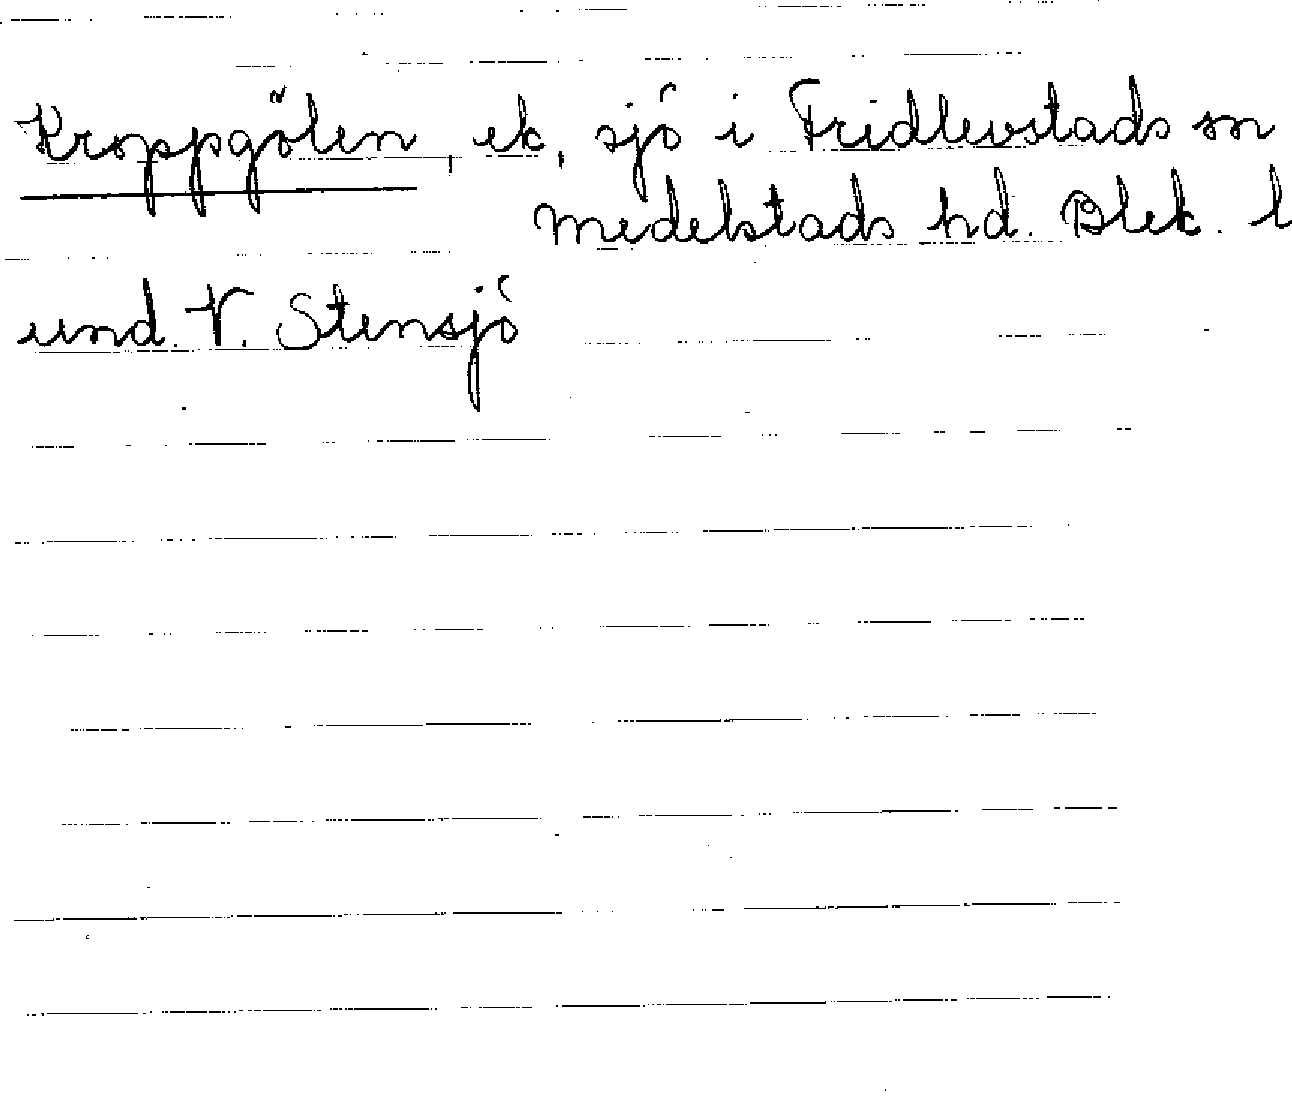 Kroppgölen, ek, sjö i Fridlevstads sn
Medelstads hd. Blek. l
und. V. Stensjö